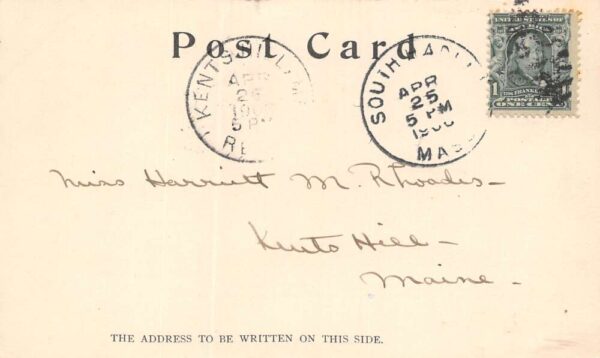 Post Card
KENTS HILL
APR
26
5 PM
RE
SOUTH
APR
25
5 PM
1906
MASS
UNITED STATES OF
AMERICA
1
FRANKLIN
POSTAGE
ONE CENT
Miss Harriett M. Rhodes-
Kents Hill-
Maine-
THE ADDRESS TO BE WRITTEN ON THIS SIDE.